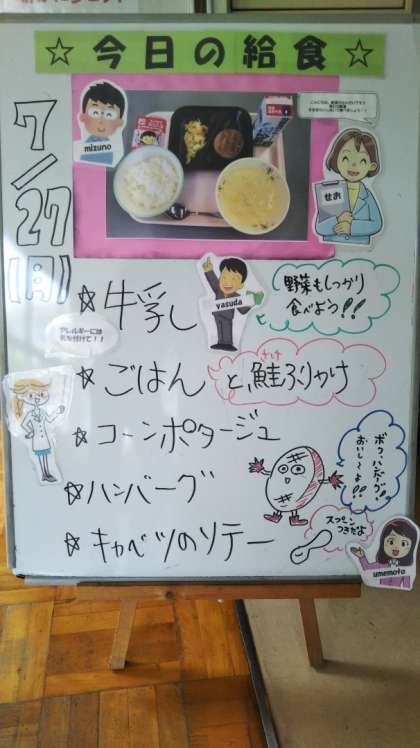 ☆今日の給食☆
7/27(月)
mizuno
せお
yasuda
☆牛乳
野菜もしっかり
食べよう!!
アレルギーには
気を付けて!!
☆ごはんと鮭ふりかけ
さけ
☆コーンポタージュ
☆ハンバーグ
ボク、ハンバーグ!
おいしーよ!!
☆キャベツのソテー
スプーン
つきだよ
umemoto